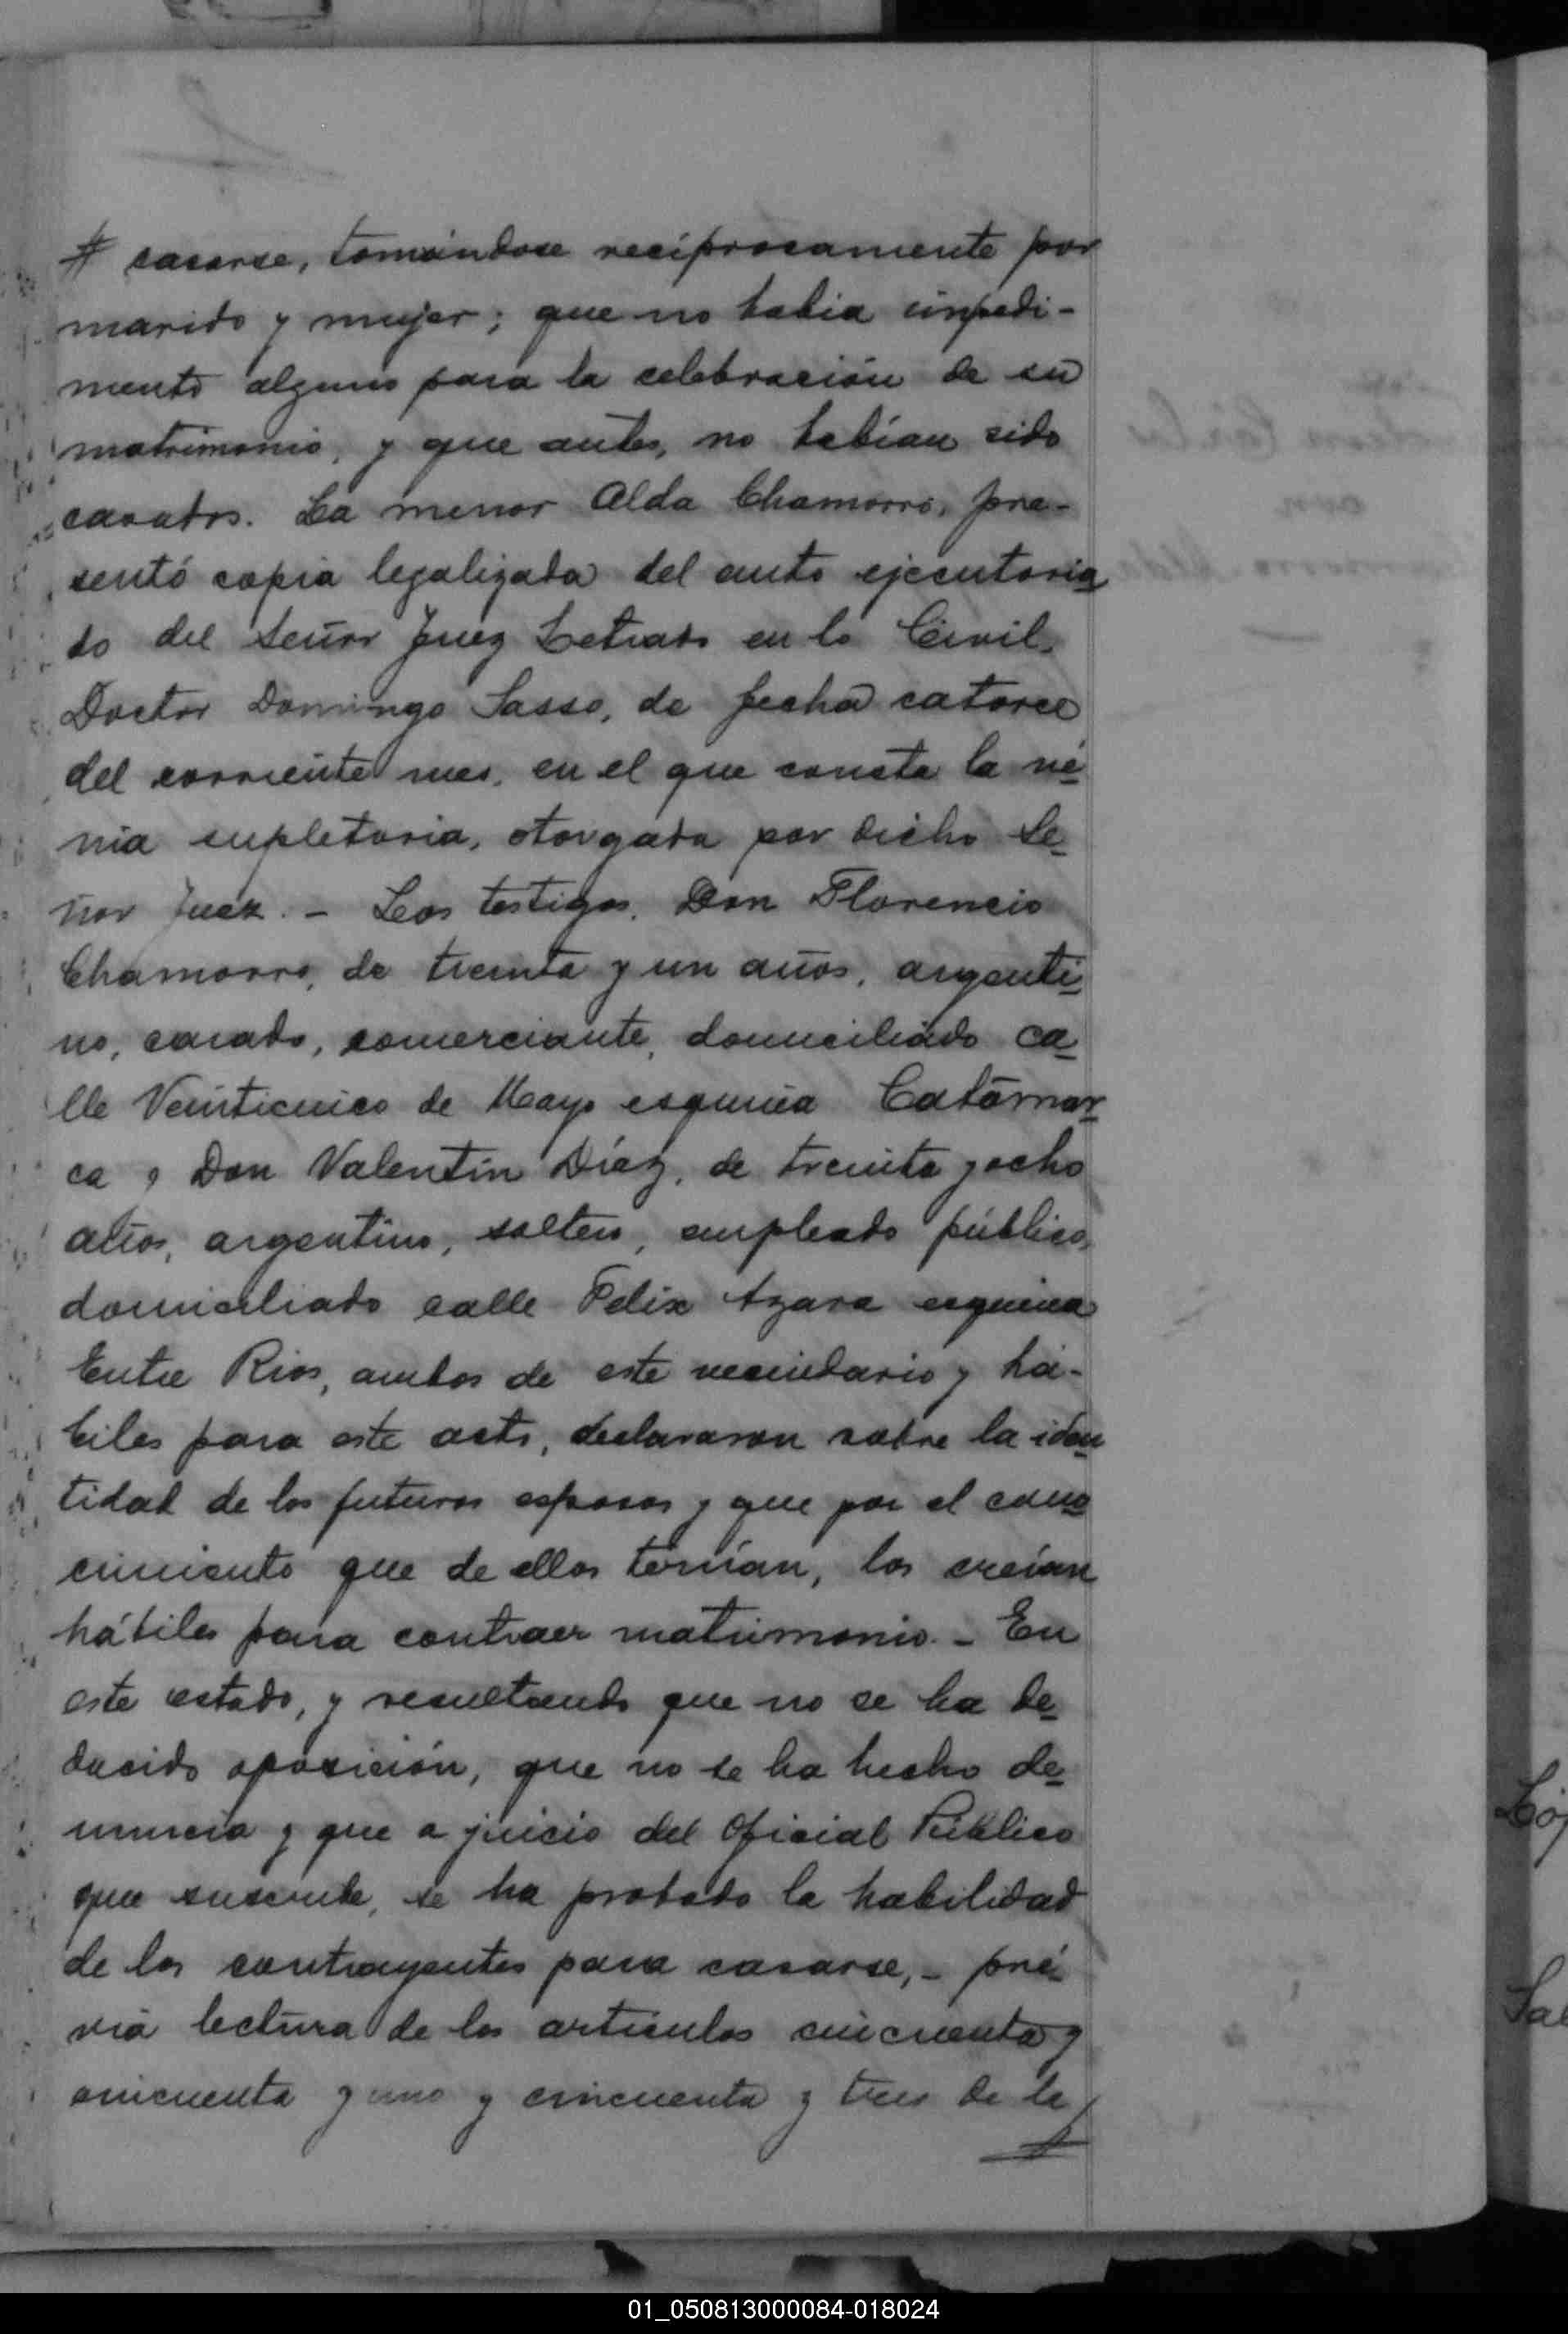 # casarse, tomándose recíprocamente por
marido y mujer; que no habia impedi-
mento alguno para la celebración de su
matrimonio, y que antes, no habían sido
casados. La menor Alda Chamorro, pre-
sentó copia legalizada del auto ejecutoria
do del Señor Juez Letrado en lo Civil,
Doctor Domingo Sasso, de fecha catorce
del corriente mes, en el que consta la vé
nia supletoria, otorgada por dicho Se
ñor Juez. - Los testigos, Don Florencio
Chamorro, de treinta y un años, argenti
no, casado, comerciante, domiciliado ca
lle Veinticinco de Mayo esquina Catamar
ca y Don Valentín Díaz, de treinta y ocho
años, argentino, soltero, empleado público,
domiciliado calle Felix Azara esquina
Entre Rios, ambos de este vecindario y há-
biles para este acto, declararon sobre la iden
tidad de los futuros esposos y que por el cono
cimiento que de ellos tenían, los creían
hábiles para contraer matrimonio. - En
este estado, y resultando que no se ha de
ducido oposición, que no se ha hecho de
nuncia y que a juicio del Oficial Público
que suscribe, se ha probado la habilidad
de los contrayentes para casarse, - pré
via lectura de los artículos cincuenta y
cincuenta y uno y cincuenta y tres de la
Sa
01_050813000084-018024